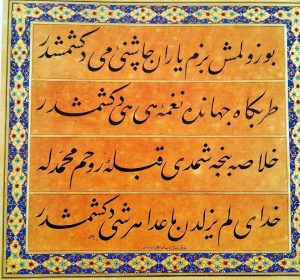 بوزولمش بزم یاران چاشنئ می دکشمشدر
طربکاه جهانده نغمهٔ هی هی دکشمشدر
خلاصه بنجه شمدی قبلهٔ روحم محمدله
خدای لم یزلدن ماعدا هر شی دکشمشدر